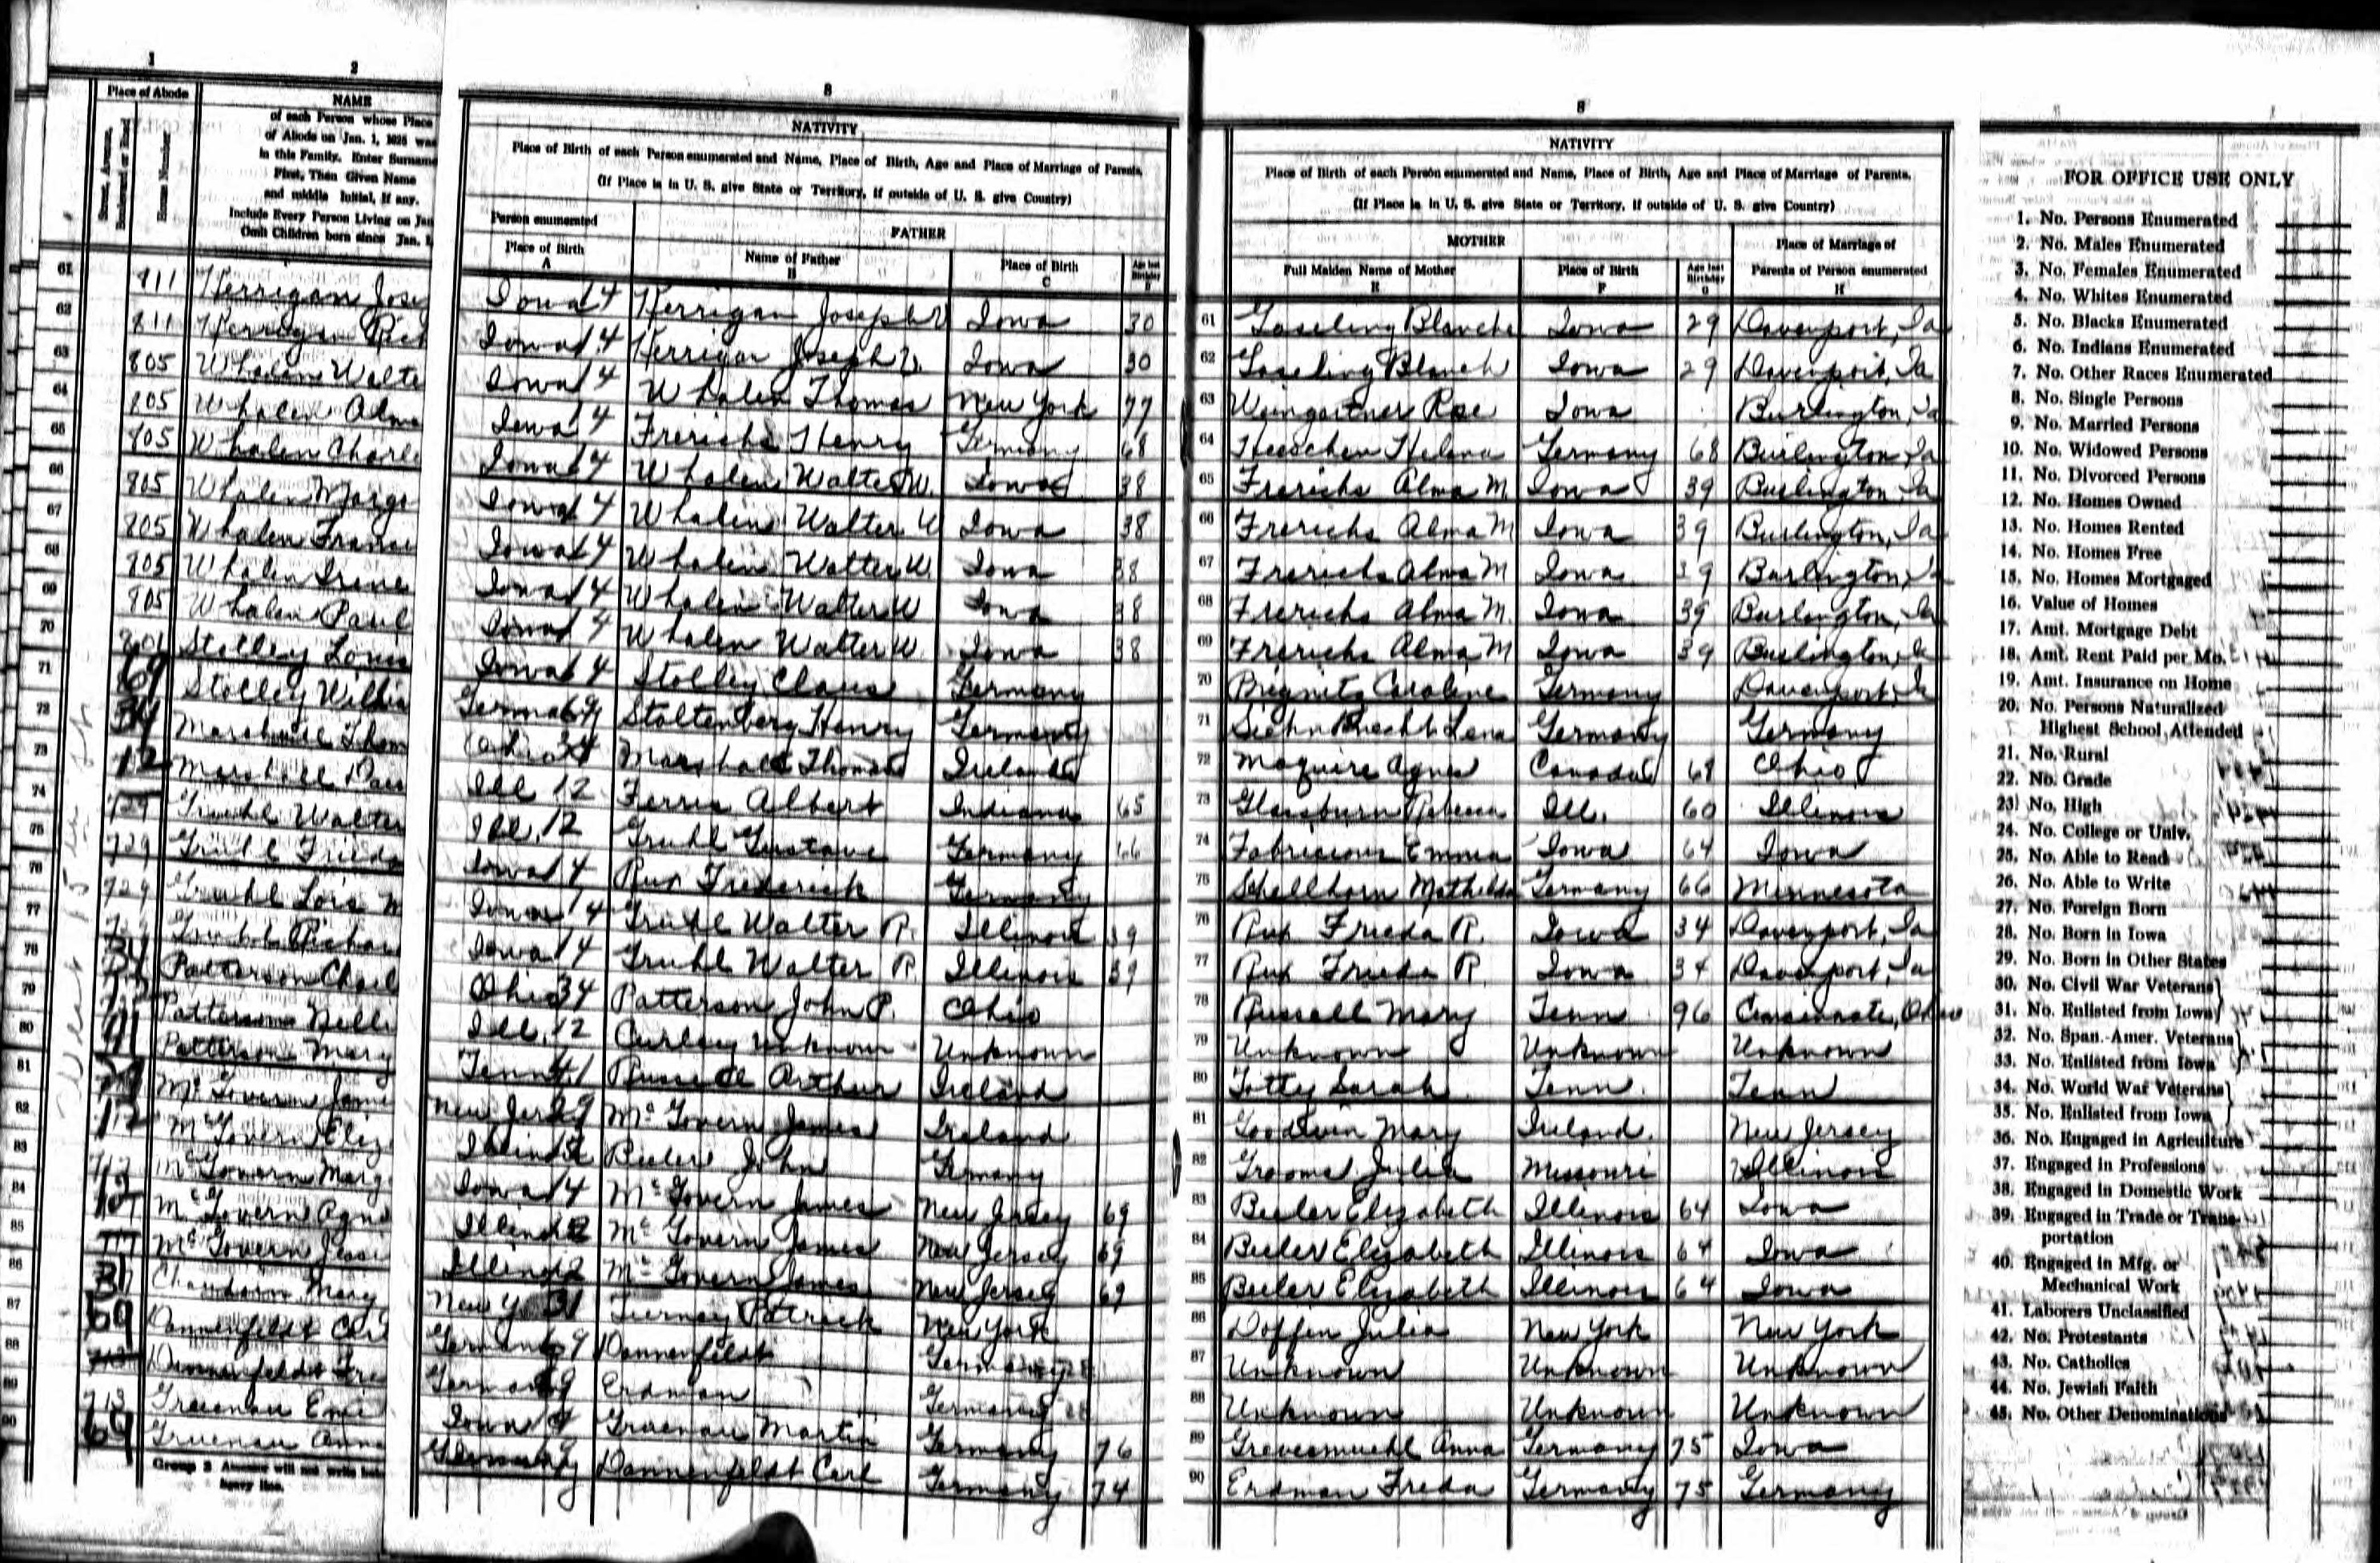 1
2
Place of Abode
Street, Avenue, Boulevard or Road
House Number
NAME
of each Person whose Place
of Abode on Jan. 1, 1925 was
in this Family. Enter Surname
First, Then Given Name
and middle Initial, if any.
Include Every Person Living on Jan
Omit Children born since Jan. 1,
61 811 Kerrigan Jose
62 811 Kerrigan Rich
63 805 Whalen Walte
64 805 Whalen Alma
65 805 Whalen Charl
66 805 Whalen Marga
67 805 Whalen Franc
68 805 Whalen Irene
69 805 Whalen Paul
70 801 Stolley Louis
71 69 Stolley Wilhi
72 34 Marshall Thom
73 12 Marshall
74 729 Gruhl Walter
75 729 Gruhl Frieda
76 729 Gruhl Lois M
77 Gruhl Richar
78 34 Patterson Charl
79 Patterson Nelli
80 Patterson Mary
81 McGovern Jame
82 McGovern Eliz
83 McGovern Marg
84 McGovern Agne
85 McGovern Jessi
86 31 Mary
87 69 Dannenfeldt Carl
88 Dannenfeldt Fre
89 713 Gruenau Emi
90 69 Gruenau Anna
Group 3 Assessor will not write below
heavy line.
8
NATIVITY
Place of Birth of each Person enumerated and Name, Place of Birth, Age and Place of Marriage of Parents.
(If Place is in U. S. give State or Territory, if outside of U. S. give Country)
Person enumerated
FATHER
Place of Birth
A
Name of Father
B
Place of Birth
C
Age last Birthday
D
Iowa 14 Kerrigan Joseph V Iowa 30
Iowa 14 Kerrigan Joseph V. Iowa 30
Iowa 14 Whalen Thomas New York 77
Iowa 14 Frerichs Henry Germany 68
Iowa 14 Whalen Walter W. Iowa 38
Iowa 14 Whalen Walter W Iowa 38
Iowa 14 Whalen Walter W. Iowa 38
Iowa 14 Whalen Walter W Iowa 38
Iowa 14 Whalen Walter W. Iowa 38
Iowa 14 Stolley Claus Germany
Germa 69 Stoltenberg Henry Germany
Ohio 34 Marshall Thomas Ireland
Ill 12 Ferris Albert Indiana 65
Ill. 12 Gruhl Gustave Germany 66
Iowa 14 Rux Frederick Germany
Iowa 14 Gruhl Walter R. Illinois 39
Iowa 14 Gruhl Walter R Illinois 39
Ohio 34 Patterson John P. Ohio
Ill. 12 Curley Unknown Unknown
Tenn 41 Russell Arthur Ireland
New Jer 29 McGovern James Ireland
Illino 12 Beeler John Germany
Iowa 14 McGovern James New Jersey 69
Illino 12 McGovern James New Jersey 69
Illino 12 McGovern James New Jersey 69
New Yo 31 Tiernay Patrick New York
German 69 Dannenfeldt Germany
German 69 Erdman Germany
Iowa 14 Gruenau Martin Germany 76
Germany Dannenfeldt Carl Germany 74
8
NATIVITY
Place of Birth of each Person enumerated and Name, Place of Birth, Age and Place of Marriage of Parents.
(If Place is in U. S. give State or Territory, if outside of U. S. give Country)
MOTHER
Full Maiden Name of Mother
E
Place of Birth
F
Age last Birthday
G
Place of Marriage of
Parents of Person enumerated
H
61 Goseling Blanche Iowa 29 Davenport, Ia
62 Goseling Blanch Iowa 29 Davenport, Ia
63 Weingartner Rose Iowa Burlington, Ia
64 Heeschen Helena Germany 68 Burlington Ia
65 Frerichs Alma M. Iowa 39 Burlington, Ia
66 Frerichs Alma M Iowa 39 Burlington, Ia
67 Frerichs Alma M Iowa 39 Burlington, Ia
68 Frerichs Alma M. Iowa 39 Burlington, Ia
69 Frerichs Alma M Iowa 39 Burlington, Ia
70 Caroline Germany Davenport, Ia
71 Lena Germany Germany
72 Maguire Agnes Canada 68 Ohio
73 Glassburn Rebecca Ill. 60 Illinois
74 Fabricious Emma Iowa 64 Iowa
75 Schellhorn Mathilda Germany 66 Minnesota
76 Rux Frieda R. Iowa 34 Davenport, Ia
77 Rux Frieda R. Iowa 34 Davenport, Ia
78 Russell Mary Tenn 96 Cincinnati, Ohio
79 Unknown Unknown Unknown
80 Totty Sarah Tenn. Tenn
81 Goodwin Mary Ireland. New Jersey
82 Grooms Julia Missouri Illinois
83 Beeler Elizabeth Illinois 64 Iowa
84 Beeler Elizabeth Illinois 64 Iowa
85 Beeler Elizabeth Illinois 64 Iowa
86 Doffin Julia New York New York
87 Unknown Unknown Unknown
88 Unknown Unknown Unknown
89 Grevesmuehl Anna Germany 75 Iowa
90 Erdman Freda Germany 75 Germany
FOR OFFICE USE ONLY
1. No. Persons Enumerated
2. No. Males Enumerated
3. No. Females Enumerated
4. No. Whites Enumerated
5. No. Blacks Enumerated
6. No. Indians Enumerated
7. No. Other Races Enumerated
8. No. Single Persons
9. No. Married Persons
10. No. Widowed Persons
11. No. Divorced Persons
12. No. Homes Owned
13. No. Homes Rented
14. No. Homes Free
15. No. Homes Mortgaged
16. Value of Homes
17. Amt. Mortgage Debt
18. Amt. Rent Paid per Mo.
19. Amt. Insurance on Home
20. No. Persons Naturalized
Highest School Attended
21. No. Rural
22. No. Grade
23. No. High
24. No. College or Univ.
25. No. Able to Read
26. No. Able to Write
27. No. Foreign Born
28. No. Born in Iowa
29. No. Born in Other States
30. No. Civil War Veterans
31. No. Enlisted from Iowa
32. No. Span.-Amer. Veterans
33. No. Enlisted from Iowa
34. No. World War Veterans
35. No. Enlisted from Iowa
36. No. Engaged in Agriculture
37. Engaged in Professions
38. Engaged in Domestic Work
39. Engaged in Trade or Trans-
portation
40. Engaged in Mfg. or
Mechanical Work
41. Laborers Unclassified
42. No. Protestants
43. No. Catholics
44. No. Jewish Faith
45. No. Other Denominations